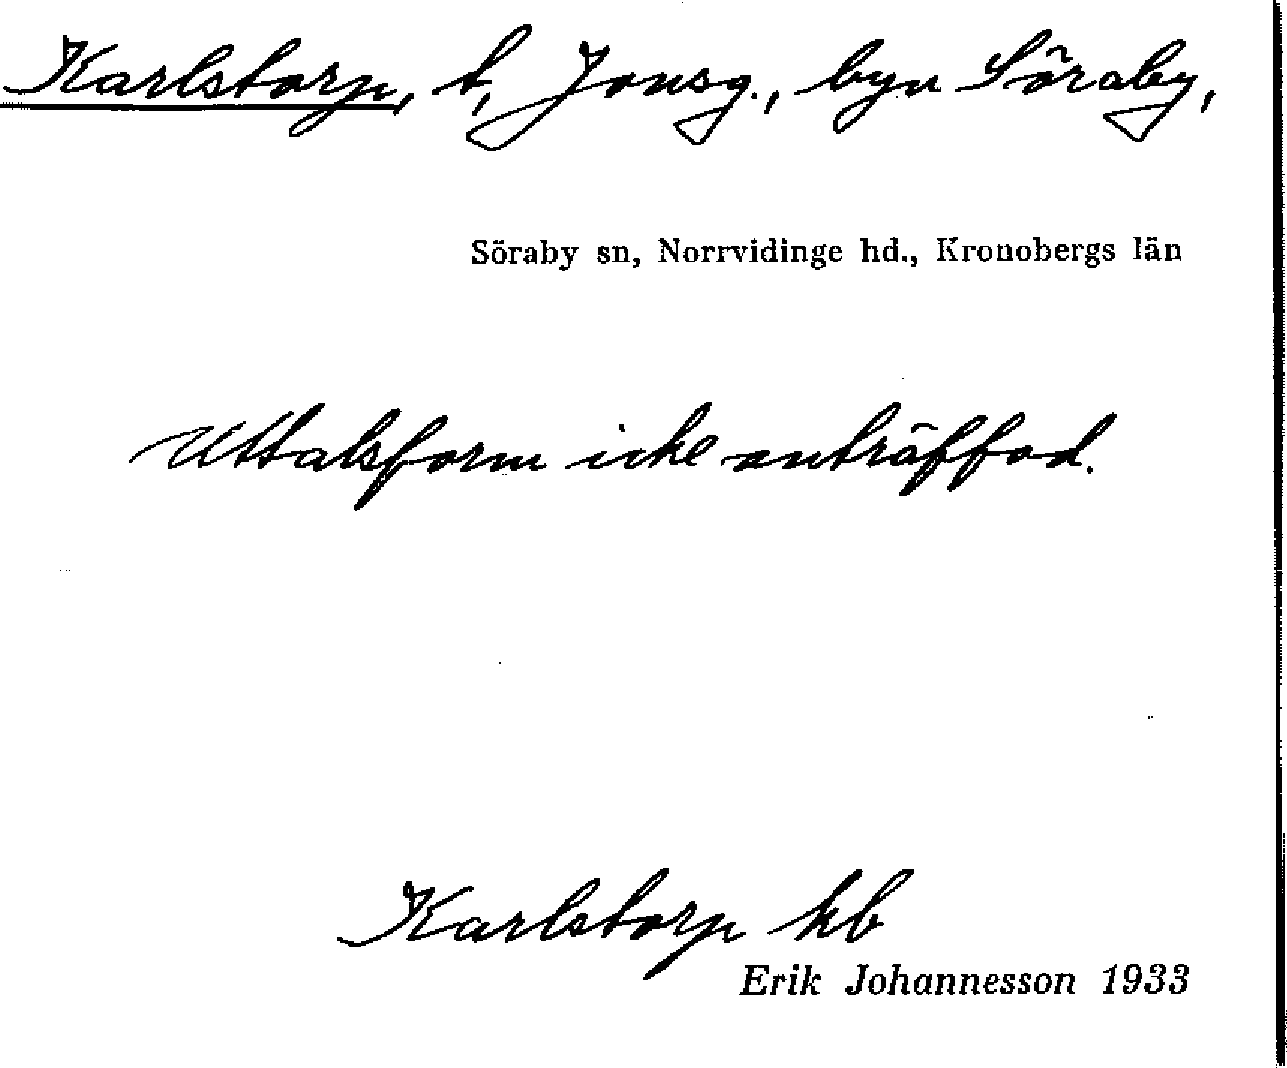 Karlstorp, t, Jonsg., byn Söraby,
Söraby sn, Norrvidinge hd., Kronobergs län
Uttalsform icke anträffad.
Karlstorp kb
Erik Johannesson 1933